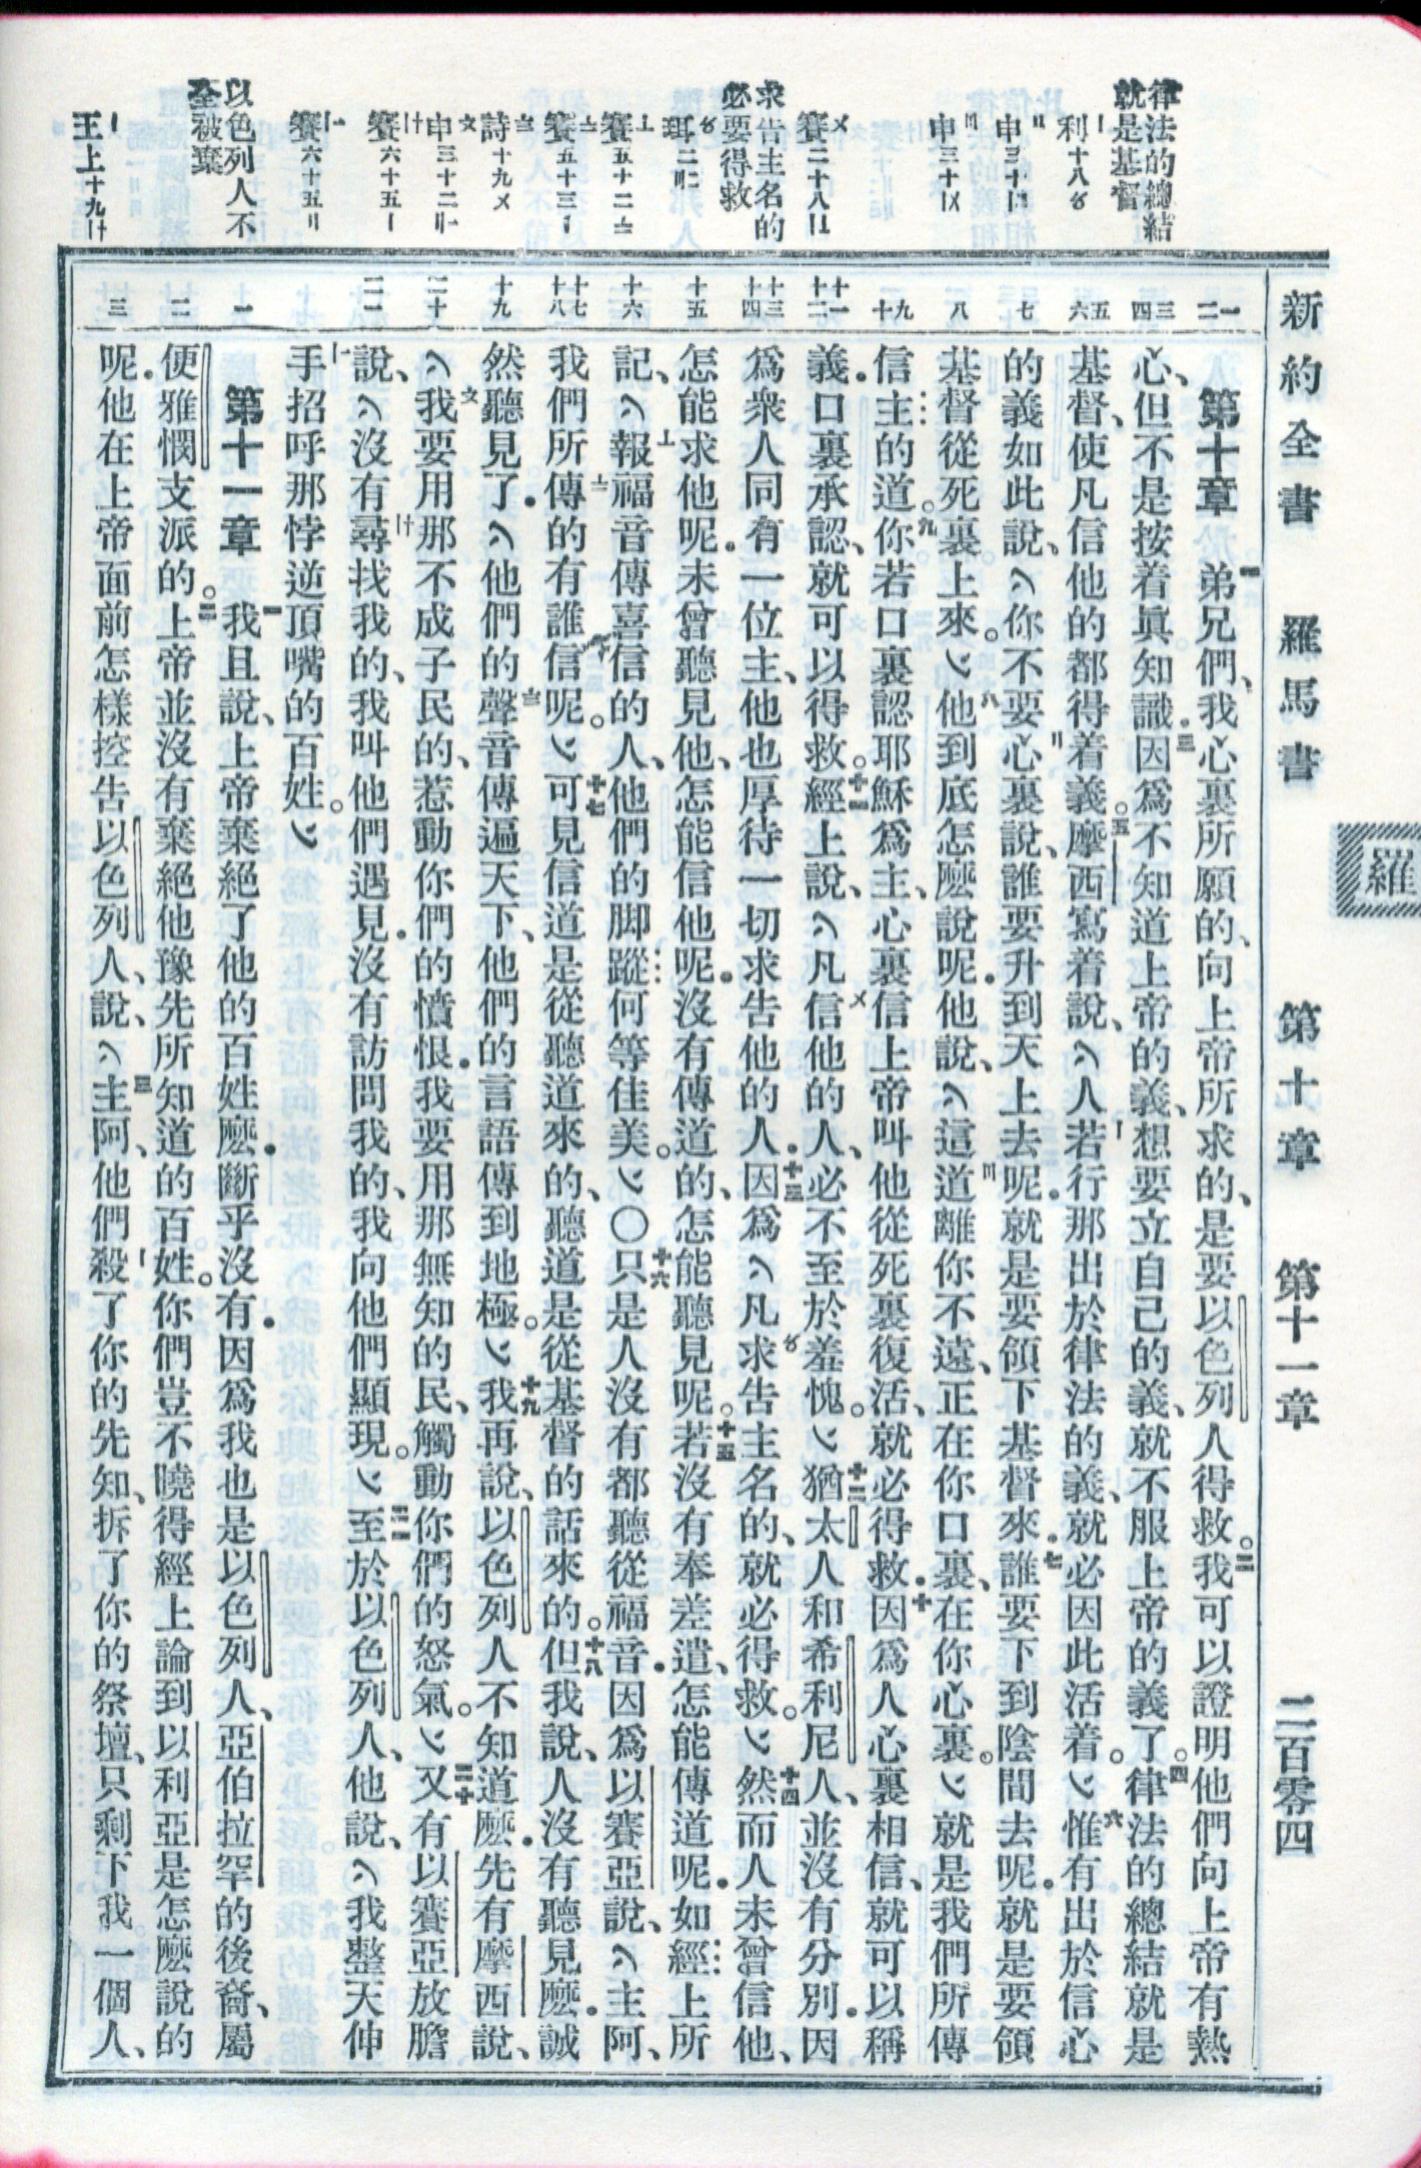 新約全書 羅馬書 第十章 第十一章 二百零四
羅
律法的總結
就是基督
利十八
申三十
申三十
賽二十八
求告主名的
必要得救
珥二
賽五十二
賽五十三
詩十九
申三十二
賽六十五
賽六十五
以色列人不
全被棄
王上十九
一二
三四
五六
七
八
九十
十一十二
十三十四
十五
十六
十七十八
十九
二十
二一
一
二
三
第十章 一弟兄們、我心裏所願的、向上帝所求的、是要以色列人得救。二我可以證明他們向上帝有熱
心、但不是按着眞知識．三因爲不知道上帝的義、想要立自己的義、就不服上帝的義了。四律法的總結就是
基督、使凡信他的都得着義。五摩西寫着說、人若行那出於律法的義、就必因此活着。六惟有出於信心
的義如此說、你不要心裏說、誰要升到天上去呢．就是要領下基督來．七誰要下到陰間去呢．就是要領
基督從死裏上來。八他到底怎麼說呢．他說、這道離你不遠、正在你口裏、在你心裏。就是我們所傳
信主的道。九你若口裏認耶穌爲主、心裏信上帝叫他從死裏復活、就必得救．十因爲人心裏相信、就可以稱
義．口裏承認、就可以得救。十一經上說、凡信他的人、必不至於羞愧。十二猶太人和希利尼人、並沒有分別．因
爲衆人同有一位主、他也厚待一切求告他的人．十三因爲凡求告主名的、就必得救。十四然而人未曾信他、
怎能求他呢．未曾聽見他、怎能信他呢．沒有傳道的、怎能聽見呢。十五若沒有奉差遣、怎能傳道呢．如經上所
記、報福音傳喜信的人、他們的脚蹤何等佳美。〇十六只是人沒有都聽從福音．因爲以賽亞說、主阿、
我們所傳的有誰信呢。十七可見信道是從聽道來的、聽道是從基督的話來的。十八但我說、人沒有聽見麽．誠
然聽見了．他們的聲音傳遍天下、他們的言語傳到地極。十九我再說、以色列人不知道麽．先有摩西說、
我要用那不成子民的、惹動你們的憤恨．我要用那無知的民、觸動你們的怒氣。二十又有以賽亞放膽
說、沒有尋找我的、我叫他們遇見．沒有訪問我的、我向他們顯現。二一至於以色列人、他說、我整天伸
手招呼那悖逆頂嘴的百姓。
第十一章 一我且說、上帝棄絕了他的百姓麽．斷乎沒有．因爲我也是以色列人、亞伯拉罕的後裔、屬
便雅憫支派的。二上帝並沒有棄絕他豫先所知道的百姓。你們豈不曉得經上論到以利亞是怎麽說的
呢．他在上帝面前怎樣控告以色列人、說、三主阿、他們殺了你的先知、拆了你的祭壇、只剩下我一個人、